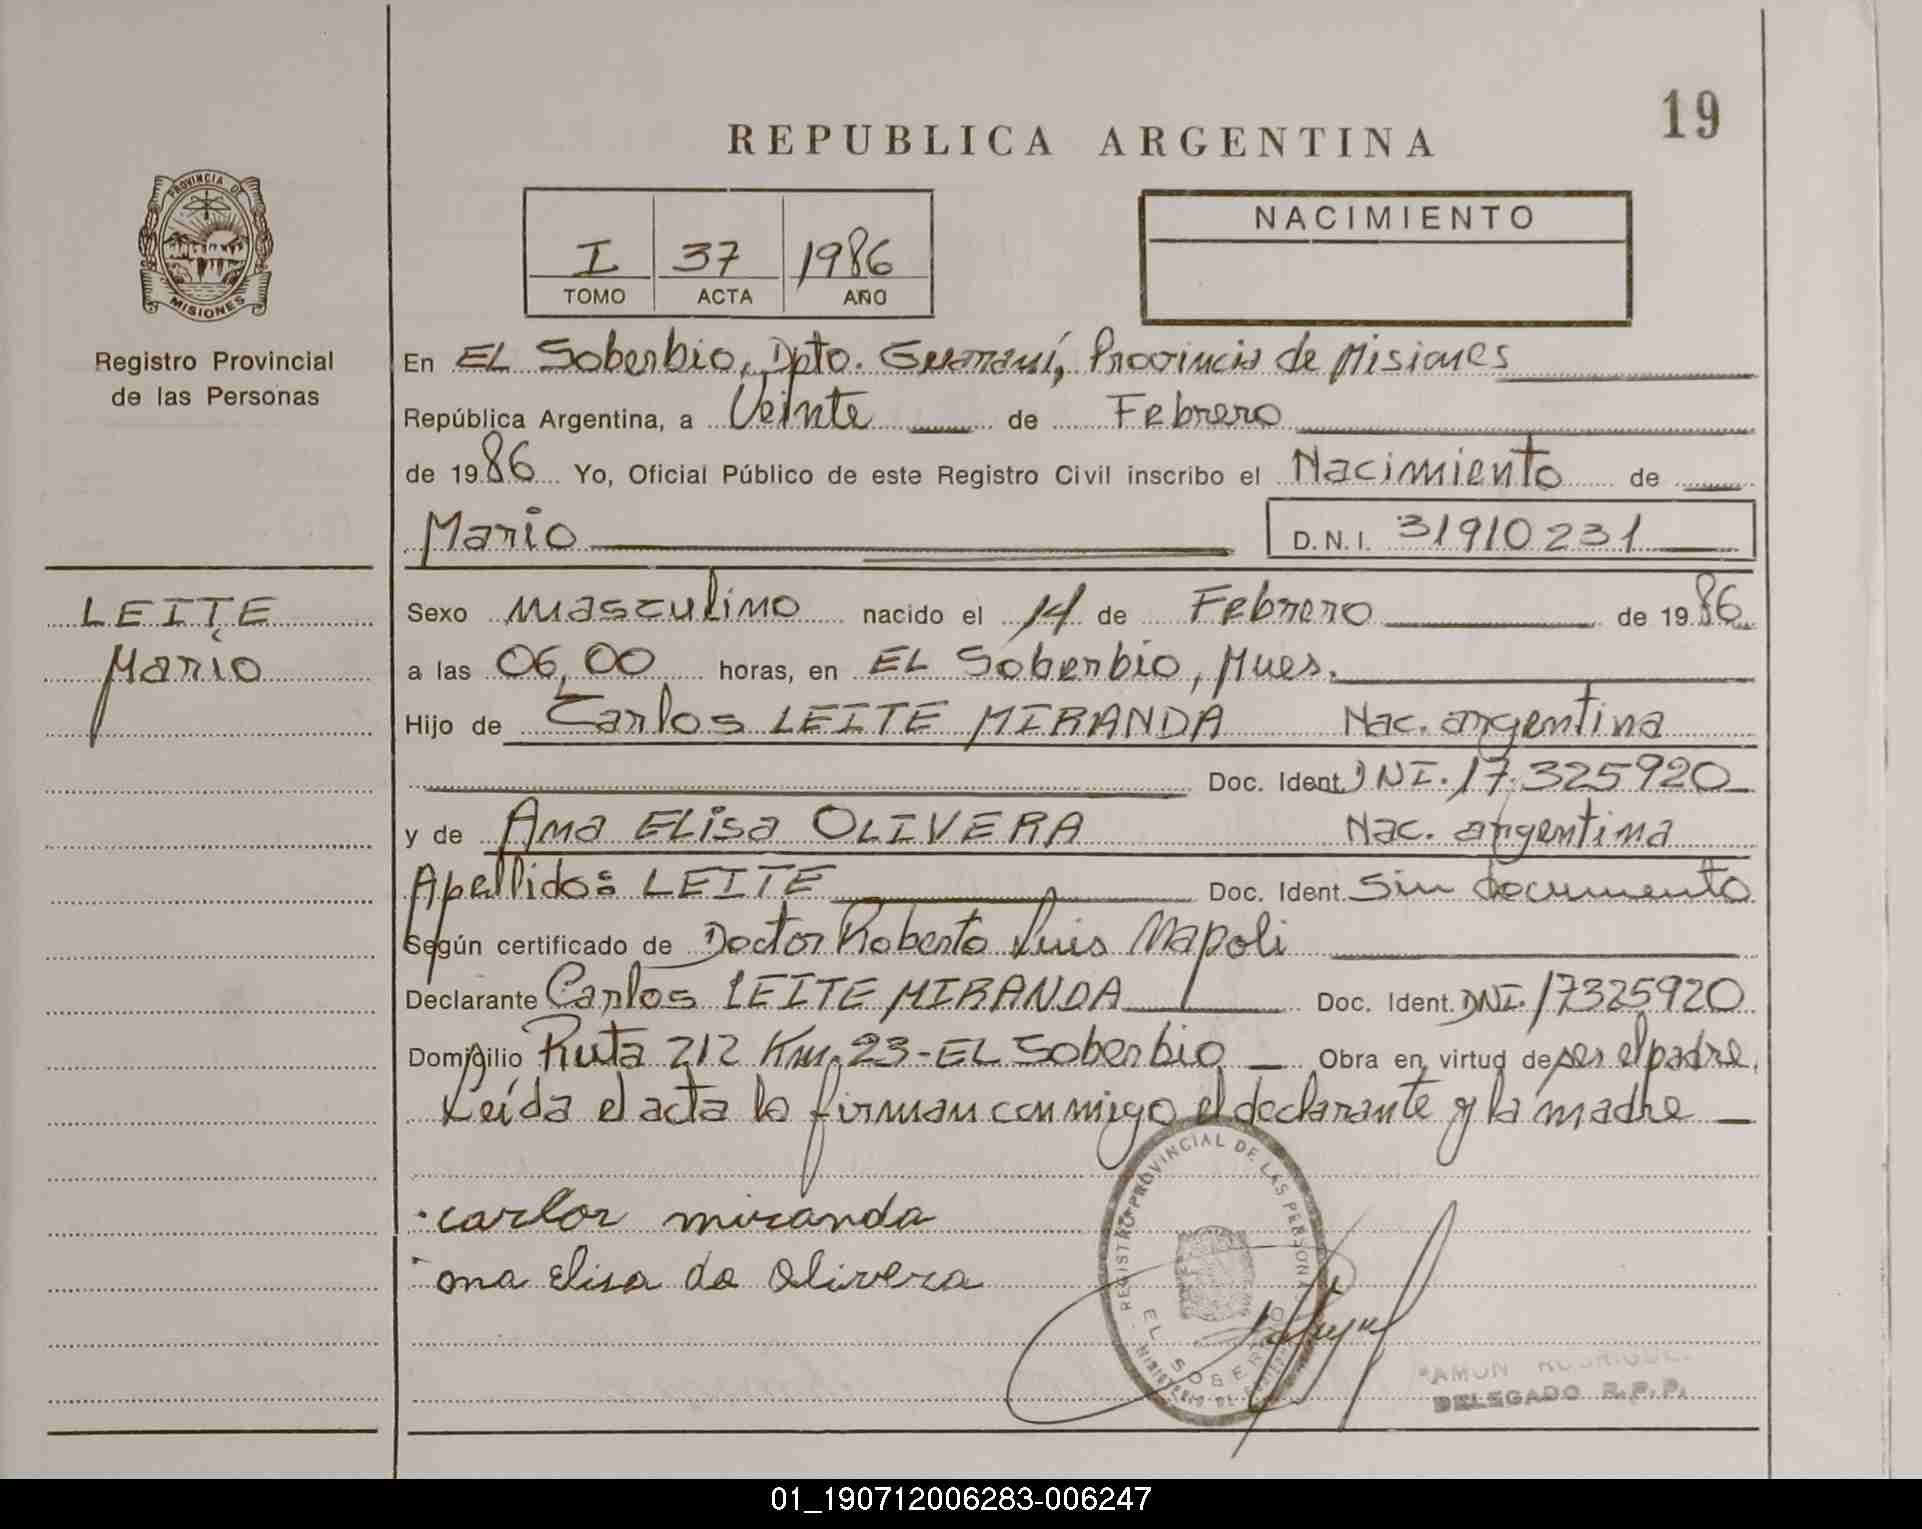 19
REPUBLICA ARGENTINA
PROVINCIA DE
MISIONES
Registro Provincial
de las Personas
I 37 1986
TOMO ACTA AÑO
NACIMIENTO
En EL Soberbio, Dpto. Guaraní, Provincia de Misiones
República Argentina, a Veinte de Febrero
de 1986 Yo, Oficial Público de este Registro Civil inscribo el Nacimiento de
Mario D.N.I. 31910231
LEITE
Mario
Sexo masculino nacido el 14 de Febrero de 1986
a las 06,00 horas, en EL Soberbio, Mnes.
Hijo de Carlos LEITE MIRANDA Nac. argentina
Doc. Ident. DNI. 17.325920
y de Ana ELisa OLIVERA Nac. argentina
Apellidos: LEITE Doc. Ident. Sin documento
Según certificado de Doctor Roberto Luis Napoli
Declarante Carlos LEITE MIRANDA Doc. Ident. DNI. 17325920
Domicilio Ruta 212 Km. 23-EL Soberbio Obra en virtud de ser el padre.
Leída el acta la firman conmigo el declarante y la madre
carlor miranda
ana elisa de olivera
REGISTRO PROVINCIAL DE LAS PERSONAS
EL SOBERBIO
MINISTERIO DE
RAMON RODRIGUE
DELEGADO R.P.P.
01_190712006283-006247